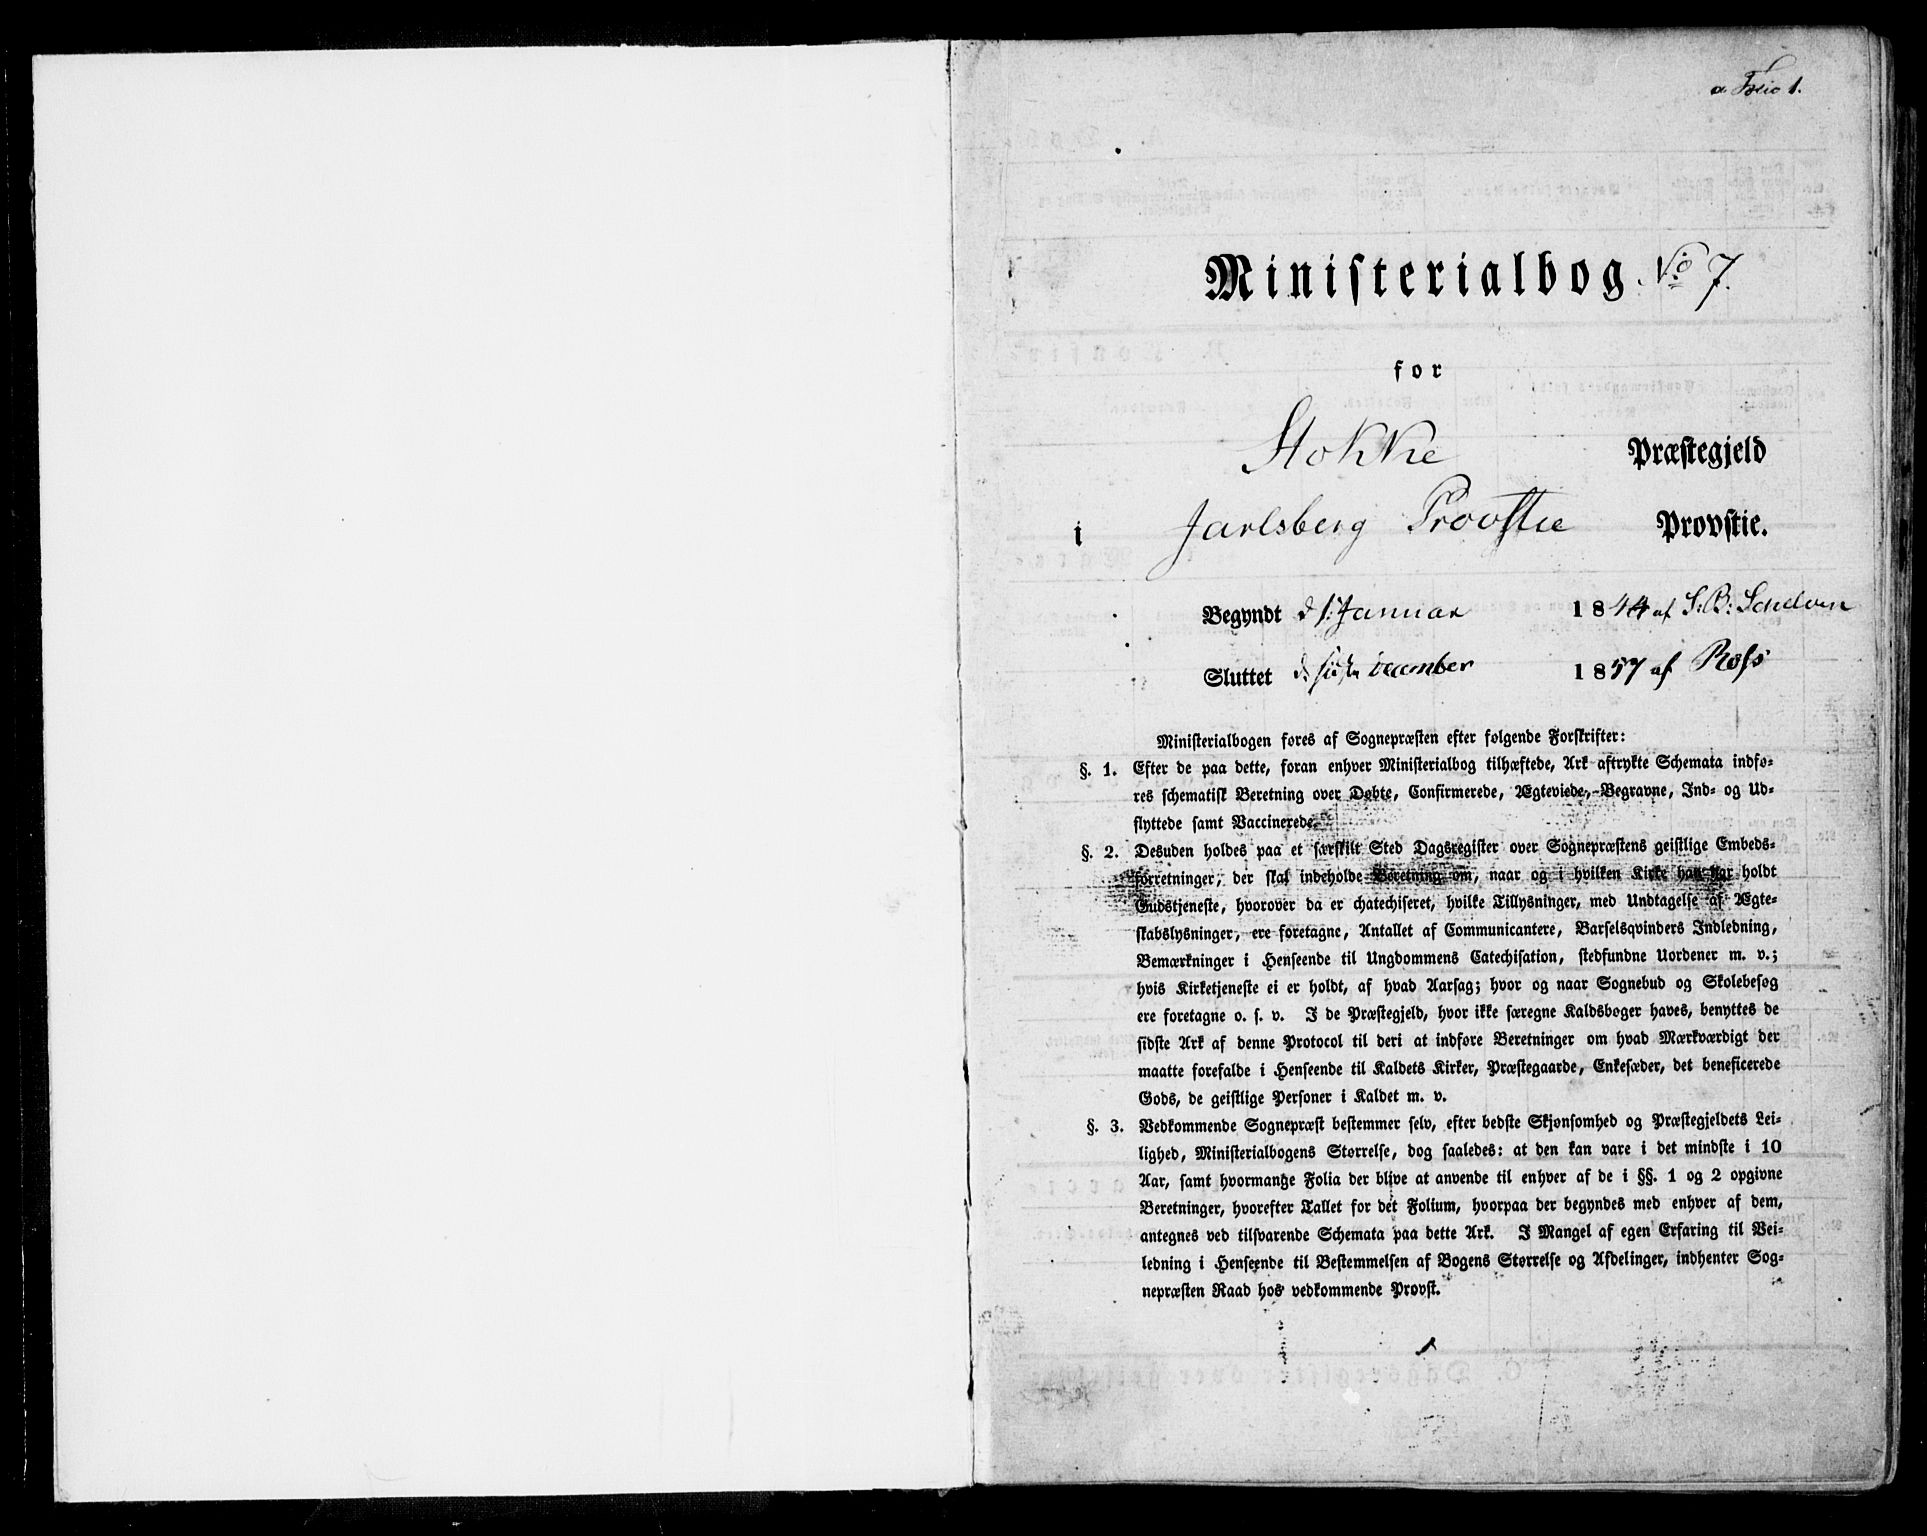 a Folio 1.
Ministerialbog No 7.
for
Stokke Præstegjeld
i Jarlsberg Provstie Provstie.
Begyndt d 1: Januar 1844 af S: B:
Sluttet d. sidste December 1857 af Ross
Ministerialbogen føres af Sognepræsten efter følgende Forskrifter:
§. 1. Efter de paa dette, foran enhver Ministerialbog tilhæftede, Ark aftrykte Schemata indfø-
res schematisk Beretning over Døbte, Confirmerede, Ægteviede, Begravne, Ind- og Ud-
flyttede samt Vaccinerede.
§. 2. Desuden holdes paa et særskilt Sted Dagsregister over Sognepræstens geistlige Embeds-
forretninger, der skal indeholde Beretning om, naar og i hvilken Kirke han har holdt
Gudstjeneste, hvorover da er chatechiseret, hvilke Tillysninger, med Undtagelse af Ægte-
skabslysninger, ere foretagne, Antallet af Communicantere, Barselsqvinders Indledning,
Bemærkninger i Henseende til Ungdommens Catechisation, stedfundne Uordener m. v.;
hvis Kirketjeneste ei er holdt, af hvad Aarsag; hvor og naar Sognebud og Skolebesøg
ere foretagne o. s. v. I de Præstegjeld, hvor ikke særegne Kaldsbøger haves, benyttes de
sidste Ark af denne Protocol til deri at indføre Beretninger om hvad Mærkværdigt der
maatte forefalde i Henseende til Kaldets Kirker, Præstegaarde, Enkesæder, det beneficerede
Gods, de geistlige Personer i Kaldet m. v.
§. 3. Vedkommende Sognepræst bestemmer selv, efter bedste Skjønsomhed og Præstegjeldets Lei-
lighed, Ministerialbogens Størrelse, dog saaledes: at den kan vare i det mindste i 10
Aar, samt hvormange Folia der blive at anvende til enhver af de i §§. 1 og 2 opgivne
Beretninger, hvorefter Tallet for det Folium, hvorpaa der begyndes med enhver af dem,
antegnes ved tilsvarende Schemata paa dette Ark. I Mangel af egen Erfaring til Vei-
ledning i Henseende til Bestemmelsen af Bogens Størrelse og Afdelinger, indhenter Sog-
nepræsten Raad hos vedkommende Provst.